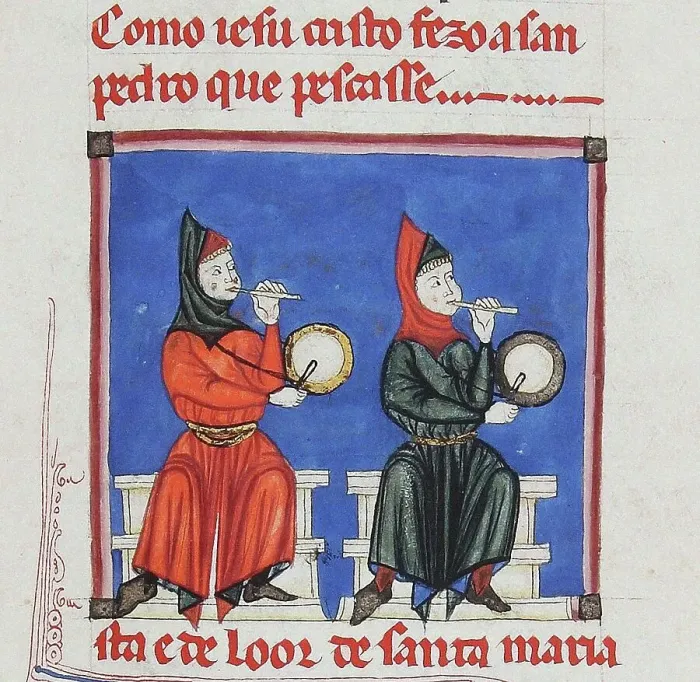 Como iesu cristo fezo a san
pedro que pescasse....
sta e de loor de santa maria